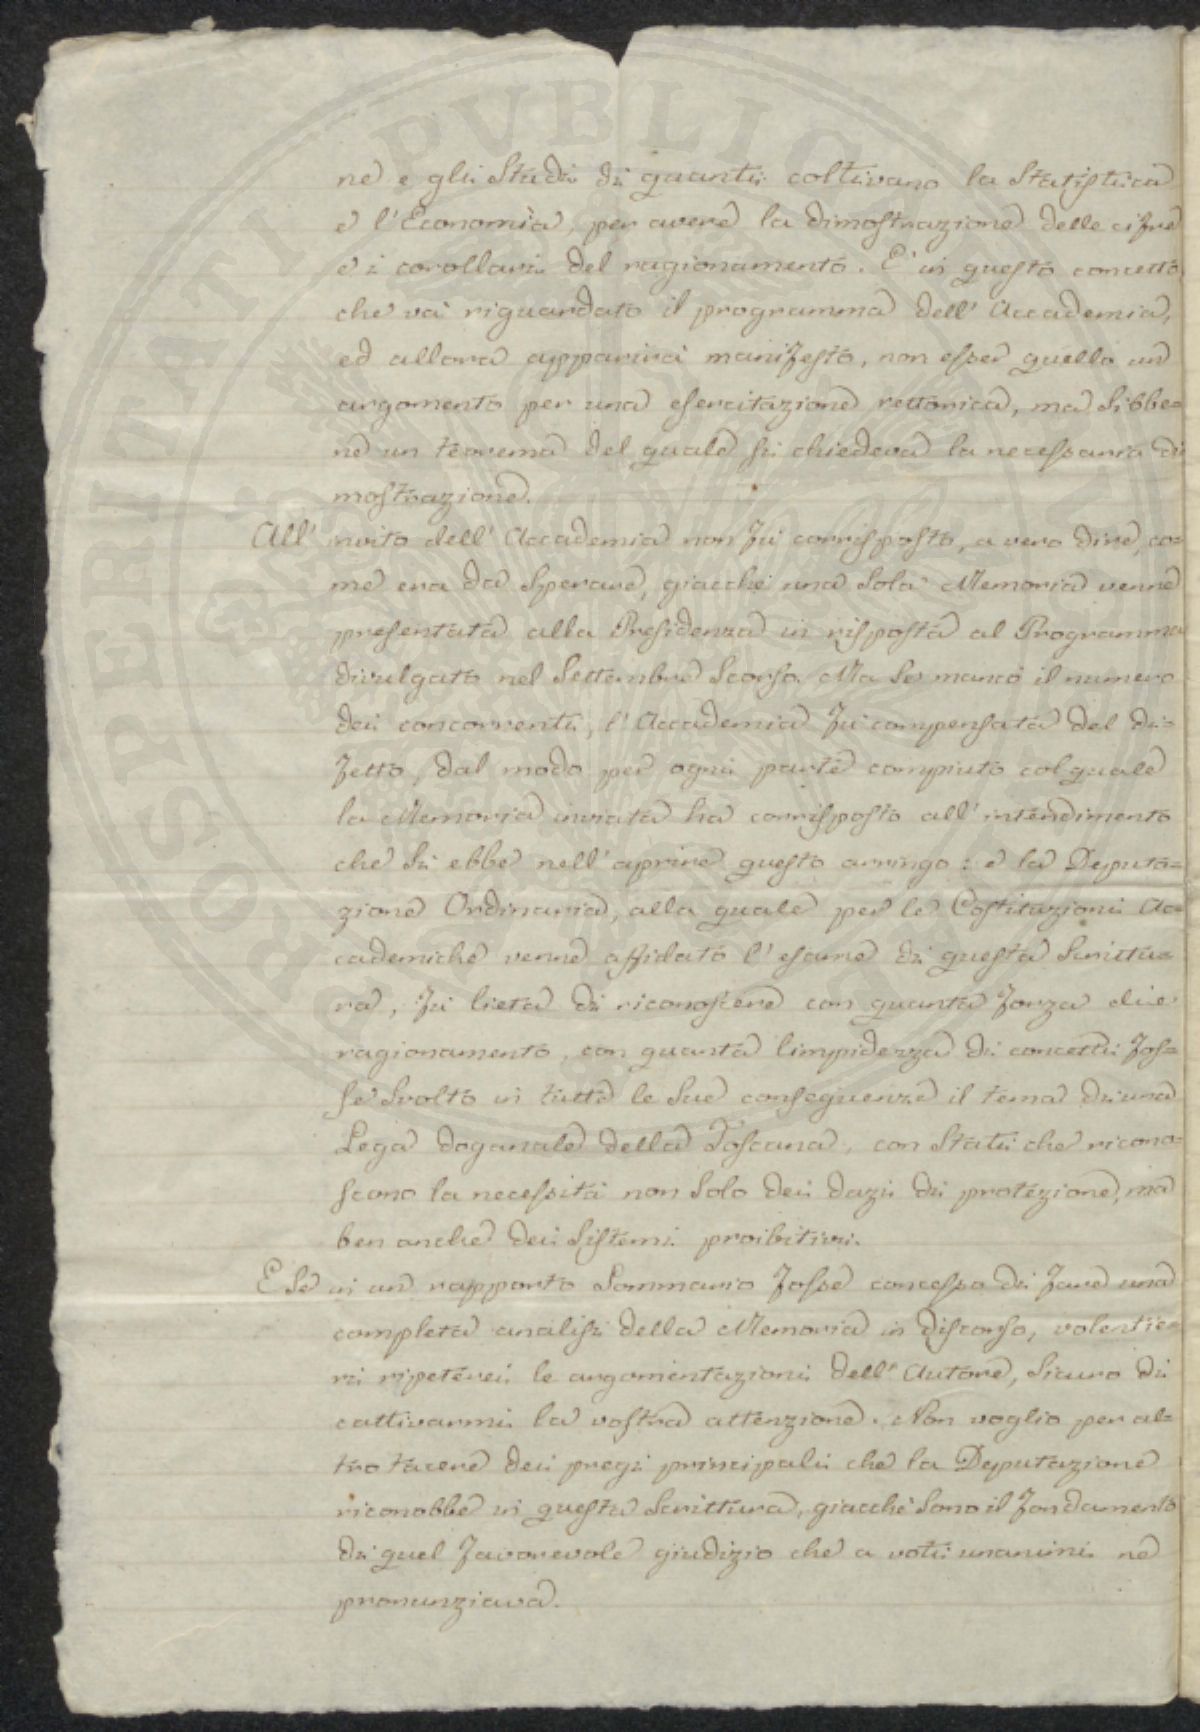 ne e gli Studi di quanti coltivano la Statistica
e l'Economia, per avere la dimostrazione delle cifre
e i corollarii del ragionamento. E' in questo concetto
che va riguardato il programma dell'Accademia,
ed allora apparirà manifesto, non esser quello un
argomento per una esercitazione rettorica, ma Sibbe=
ne un teorema del quale si chiedeva la necessaria di
mostrazione.
All'invito dell'Accademia non fu corrisposto, a vero dire, co=
me era da Sperare, giacchè una Sola Memoria venne
presentata alla Presidenza in risposta al Programma
divulgato nel Settembre Scorso. Ma Se mancò il numero
dei concorrenti, l'Accademia fu compensata del di=
fetto, dal modo per ogni parte compiuto col quale
la Memoria inviata ha corrisposto all'intendimento
che Si ebbe nell'aprire questo arringo: e la Deputa=
zione Ordinaria, alla quale per le Costituzioni Ac=
cademiche venne affidato l'esame di questa Scrittu=
ra, fu lieta di riconoscere con quanta forza di
ragionamento, con quanta limpidezza di concetti fos=
se Svolto in tutte le Sue conseguenze il tema di una
Lega doganale della Toscana, con Stati che ricono=
scono la necessità non Solo dei dazii di protezione, ma
ben anche dei Sistemi proibitivi.
E Se in un rapporto Sommario fosse concesso di fare una
completa analisi della Memoria in discorso, volentie=
ri ripeterei le argomentazioni dell'Autore, Sicuro di
cattivarmi la vostra attenzione. Non voglio per al=
tro tacere dei pregi principali che la Deputazione
riconobbe in questa Scrittura, giacchè Sono il fondamento
di quel favorevole giudizio che a voti unanimi ne
pronunziava.
PROSPERITATI PUBLICAE